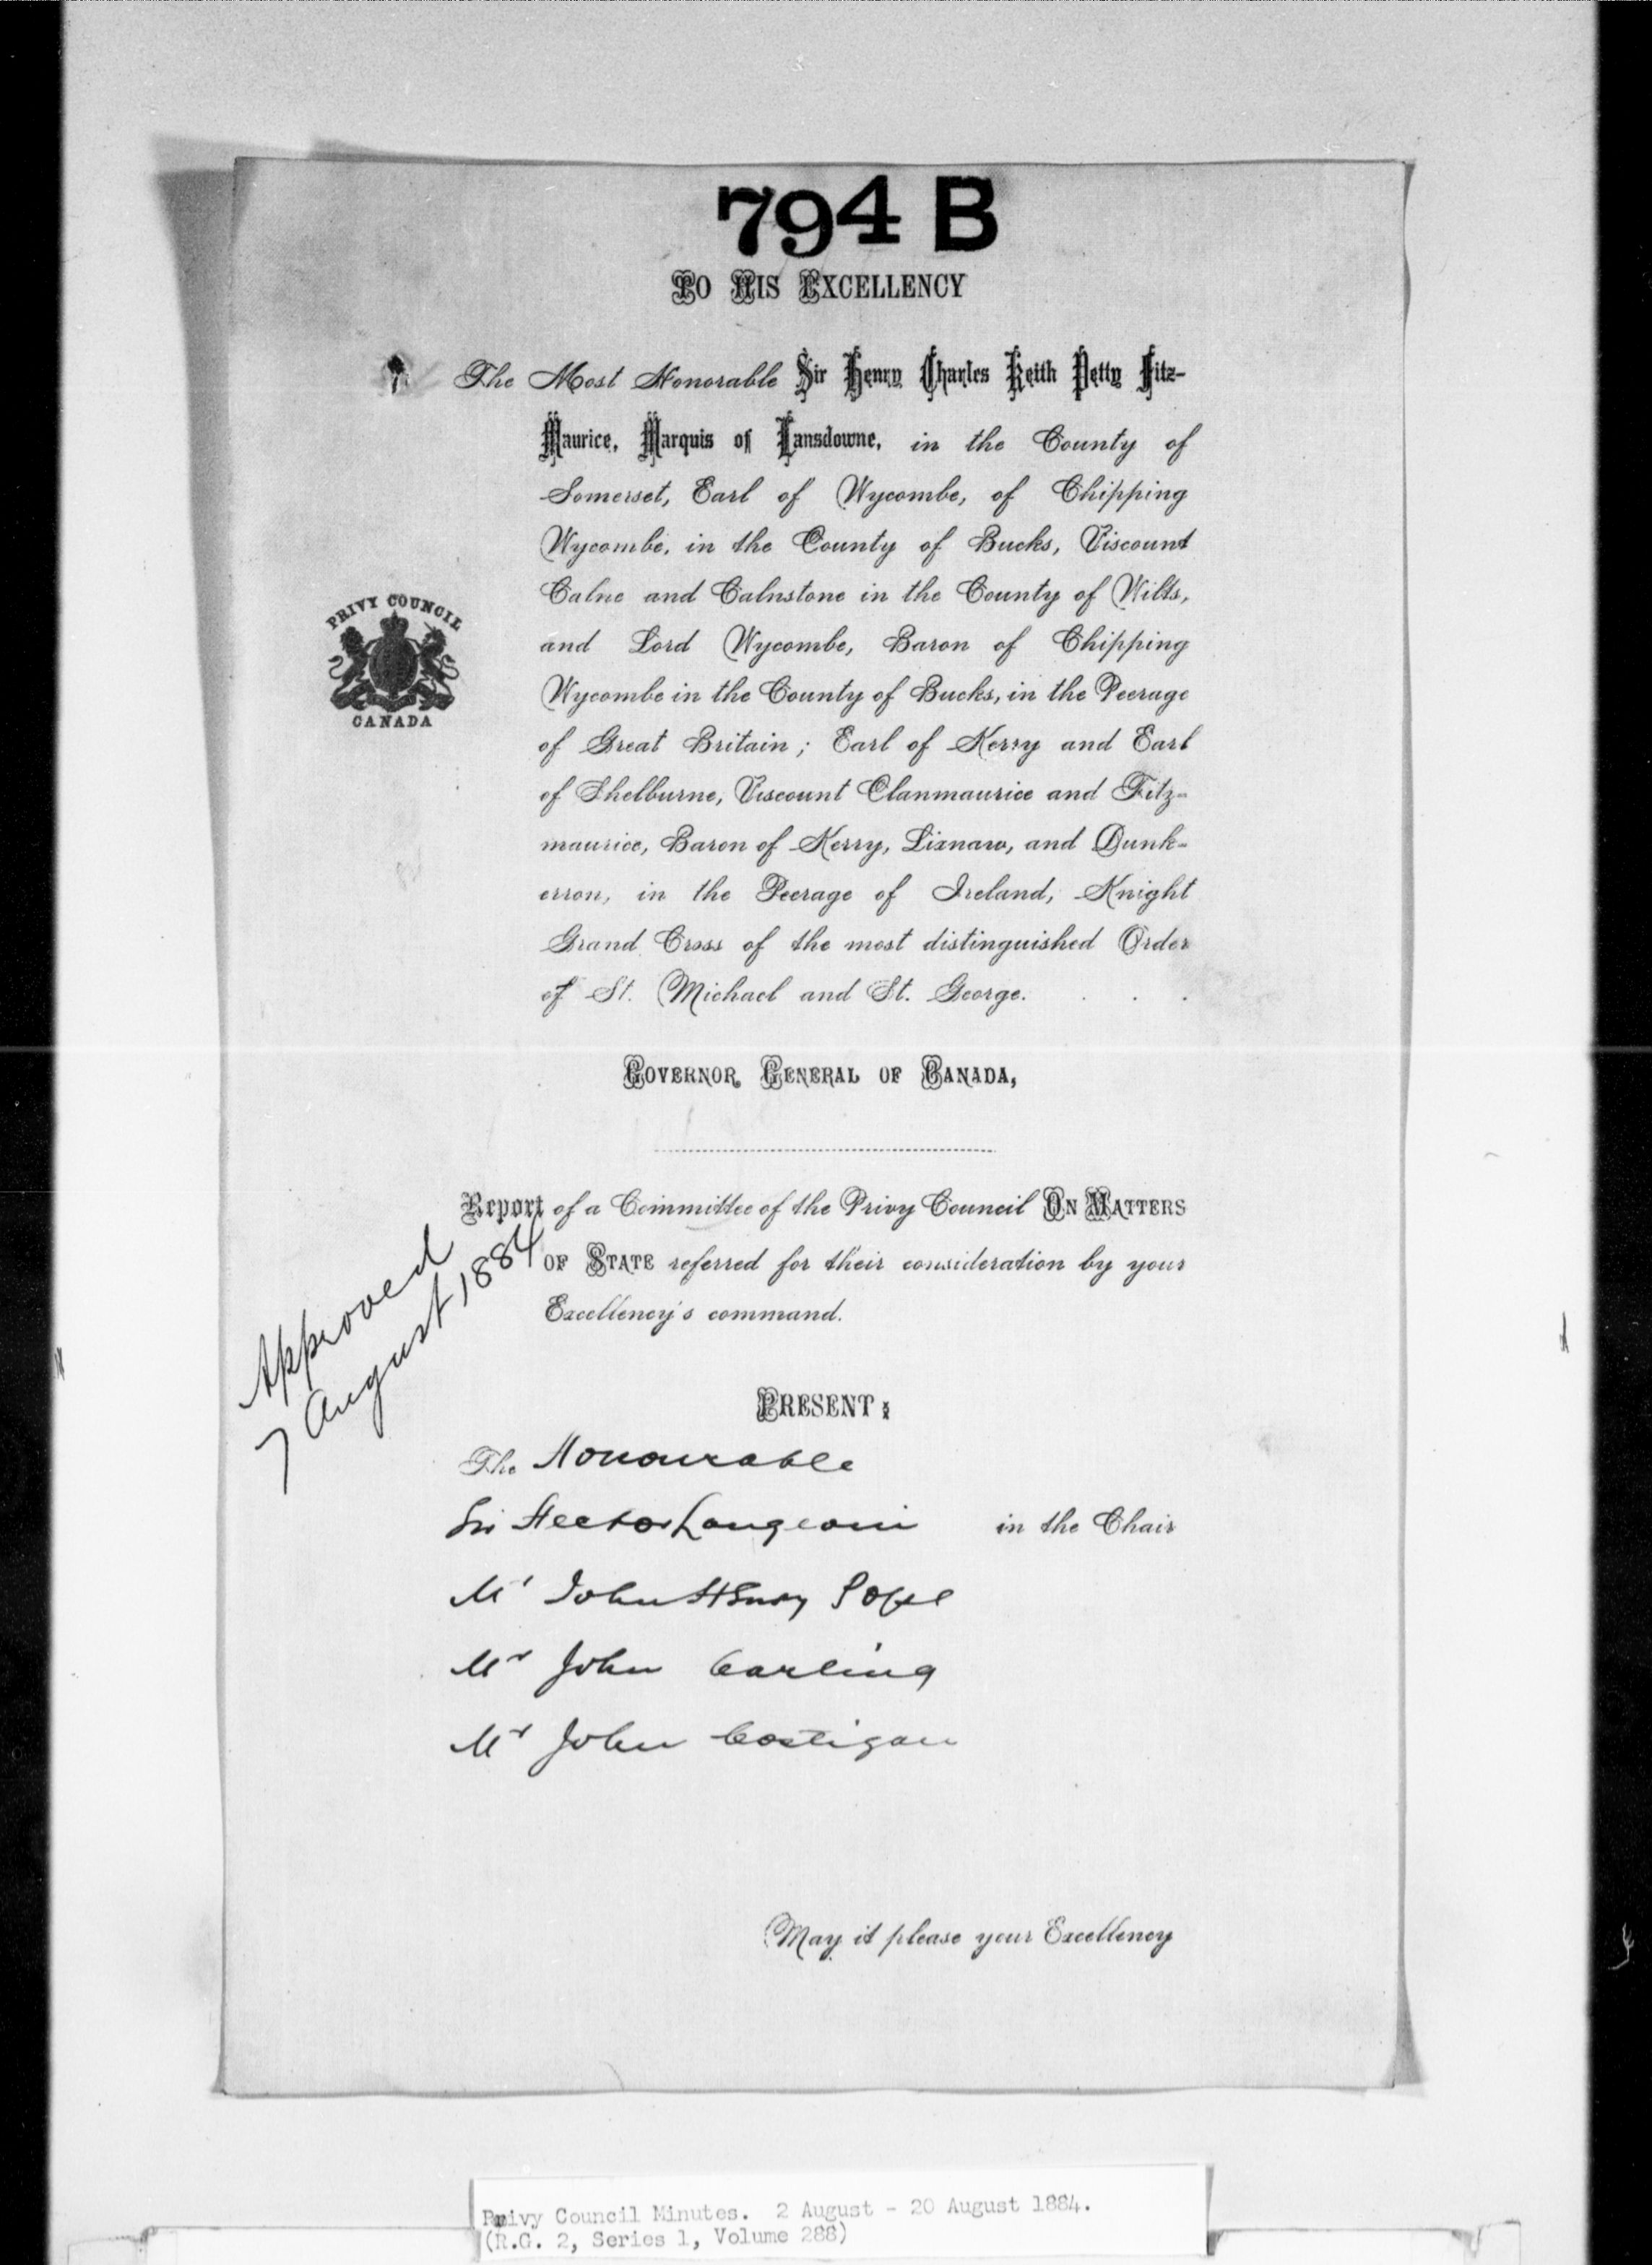 794 B
TO HIS EXCELLENCY
The Most Honorable Sir Henry Charles Keith Petty Fitz-
Maurice, Marquis of Lansdowne, in the County of
Somerset, Earl of Wycombe, of Chipping
Wycombe, in the County of Bucks, Viscount
Calne and Calnstone in the County of Wilts,
and Lord Wycombe, Baron of Chipping
Wycombe in the County of Bucks, in the Peerage
of Great Britain; Earl of Kerry and Earl
of Shelburne, Viscount Clanmaurice and Fitz-
maurice, Baron of Kerry, Lixnaw, and Dunk-
erron, in the Peerage of Ireland, Knight
Grand Cross of the most distinguished Order
of St. Michael and St. George. . . .
PRIVY COUNCIL
CANADA
GOVERNOR GENERAL OF CANADA,
Report of a Committee of the Privy Council ON MATTERS
OF STATE referred for their consideration by your
Excellency's command.
Approved
7 August 1884
PRESENT:
The Honourable
Sir Hector Langevin in the Chair
Mr John Henry Pope
Mr John Carling
Mr John Costigan
May it please your Excellency
Privy Council Minutes. 2 August - 20 August 1884.
(R.G. 2, Series 1, Volume 288)